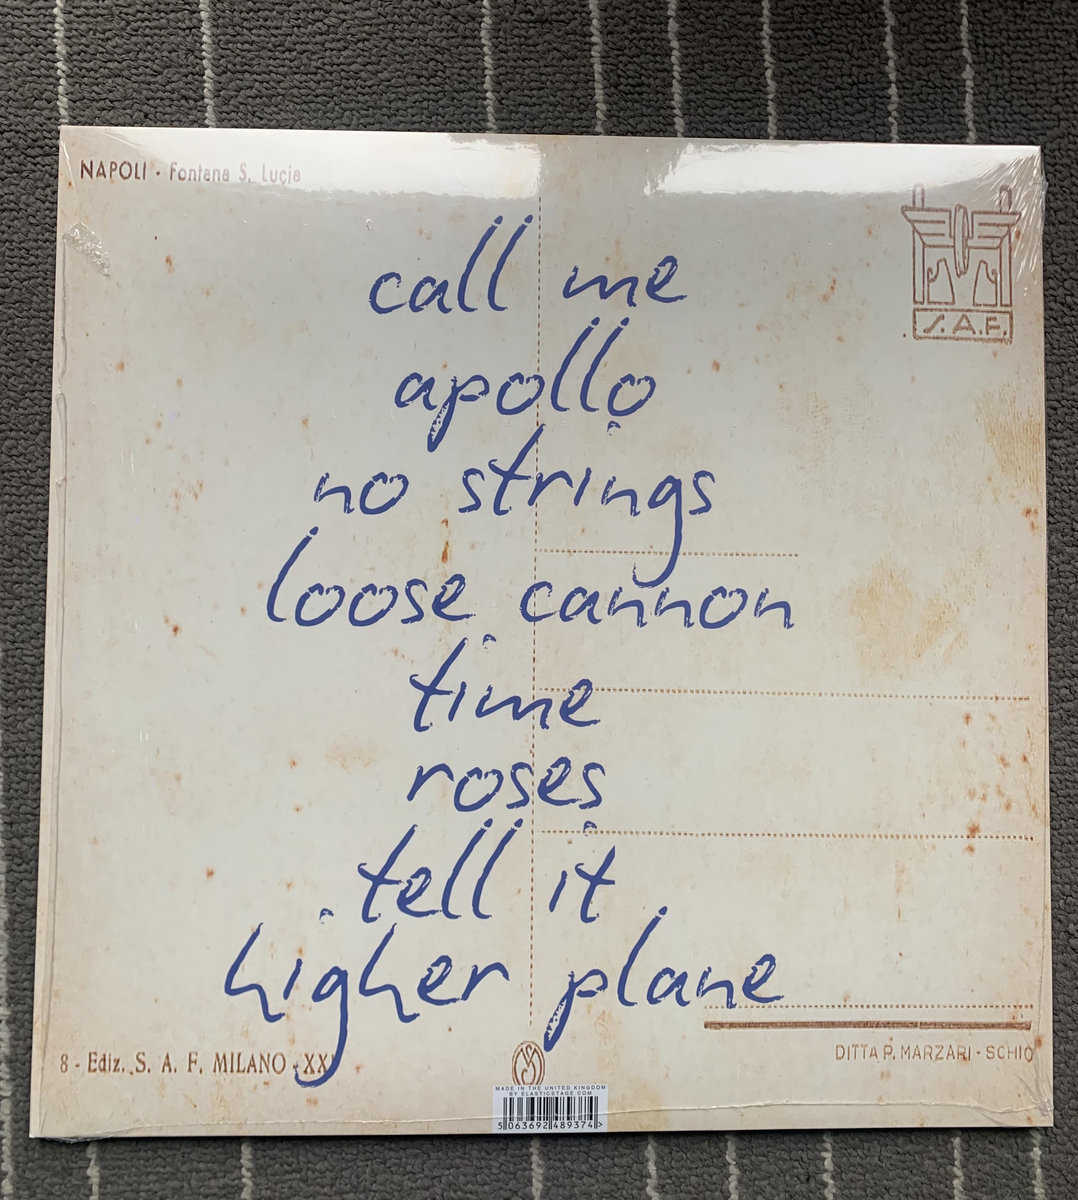 NAPOLI - Fontana S. Lucia
S.A.F.
call me
apollo
no strings
loose cannon
time
roses
tell it
higher plane
8 - Ediz. S. A. F. MILANO - XX
DITTA P. MARZARI - SCHIO
MADE IN THE UNITED KINGDOM
BY ELASTICSTAGE.COM
5 063692 489374 >